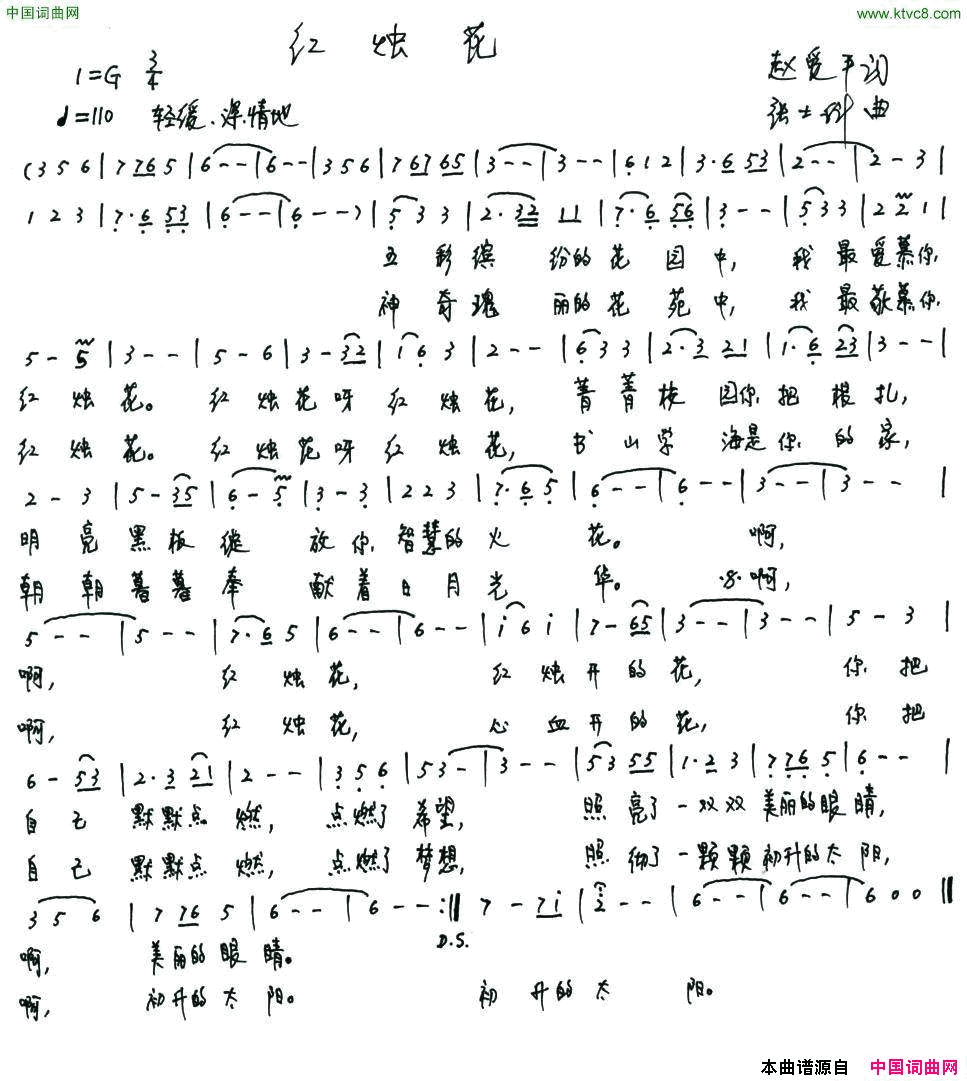 中国词曲网
www.ktvc8.com
红烛花
1=G 3/4
赵爱平词
♩=110 轻缓、深情地
曲
(3 5 6 | 7 76 5 | 6 - - | 6 - - | 3 5 6 | 7 67 65 | 3 - - | 3 - - | 6 1 2 | 3· 6 53 | 2 - - | 2 - 3 |
1 2 3 | 7· 6 53 | 6 - - | 6 - - ) | 5 3 3 | 2· 32 11 | 7· 6 56 | 3 - - | 5 3 3 | 2 2 1 |
五彩缤纷的花园中，我最爱慕你
神奇瑰丽的花苑中，我最敬慕你
5 - 5 | 3 - - | 5 - 6 | 3 - 32 | 1 6 3 | 2 - - | 6 3 3 | 2· 3 21 | 1· 6 23 | 3 - - |
红烛花。红烛花呀红烛花，菁菁校园你把根扎，
红烛花。红烛花呀红烛花，书山学海是你的家，
2 - 3 | 5 - 35 | 6 - 5 | 3 - 3 | 2 2 3 | 7· 6 5 | 6 - - | 6 - - | 3 - - | 3 - - |
明亮黑板绽放你智慧的火花。啊，
朝朝暮暮奉献着日月光华。啊，
5 - - | 5 - - | 7· 6 5 | 6 - - | 6 - - | i 6 i | 7 - 65 | 3 - - | 3 - - | 5 - 3 |
啊，红烛花，红烛开的花，你把
啊，红烛花，心血开的花，你把
6 - 53 | 2· 3 21 | 2 - - | 3 5 6 | 53 - | 3 - - | 53 55 | 1· 2 3 | 7 76 5 | 6 - - |
自己默默点燃，点燃了希望，照亮了一双双美丽的眼睛，
自己默默点燃，点燃了梦想，照彻了一颗颗初升的太阳，
3 5 6 | 7 76 5 | 6 - - | 6 - - :‖ 7 - 7i | 2 - - | 6 - - | 6 - - | 6 0 0 ‖
D.S.
啊，美丽的眼睛。
啊，初升的太阳。初升的太阳。
本曲谱源自 中国词曲网